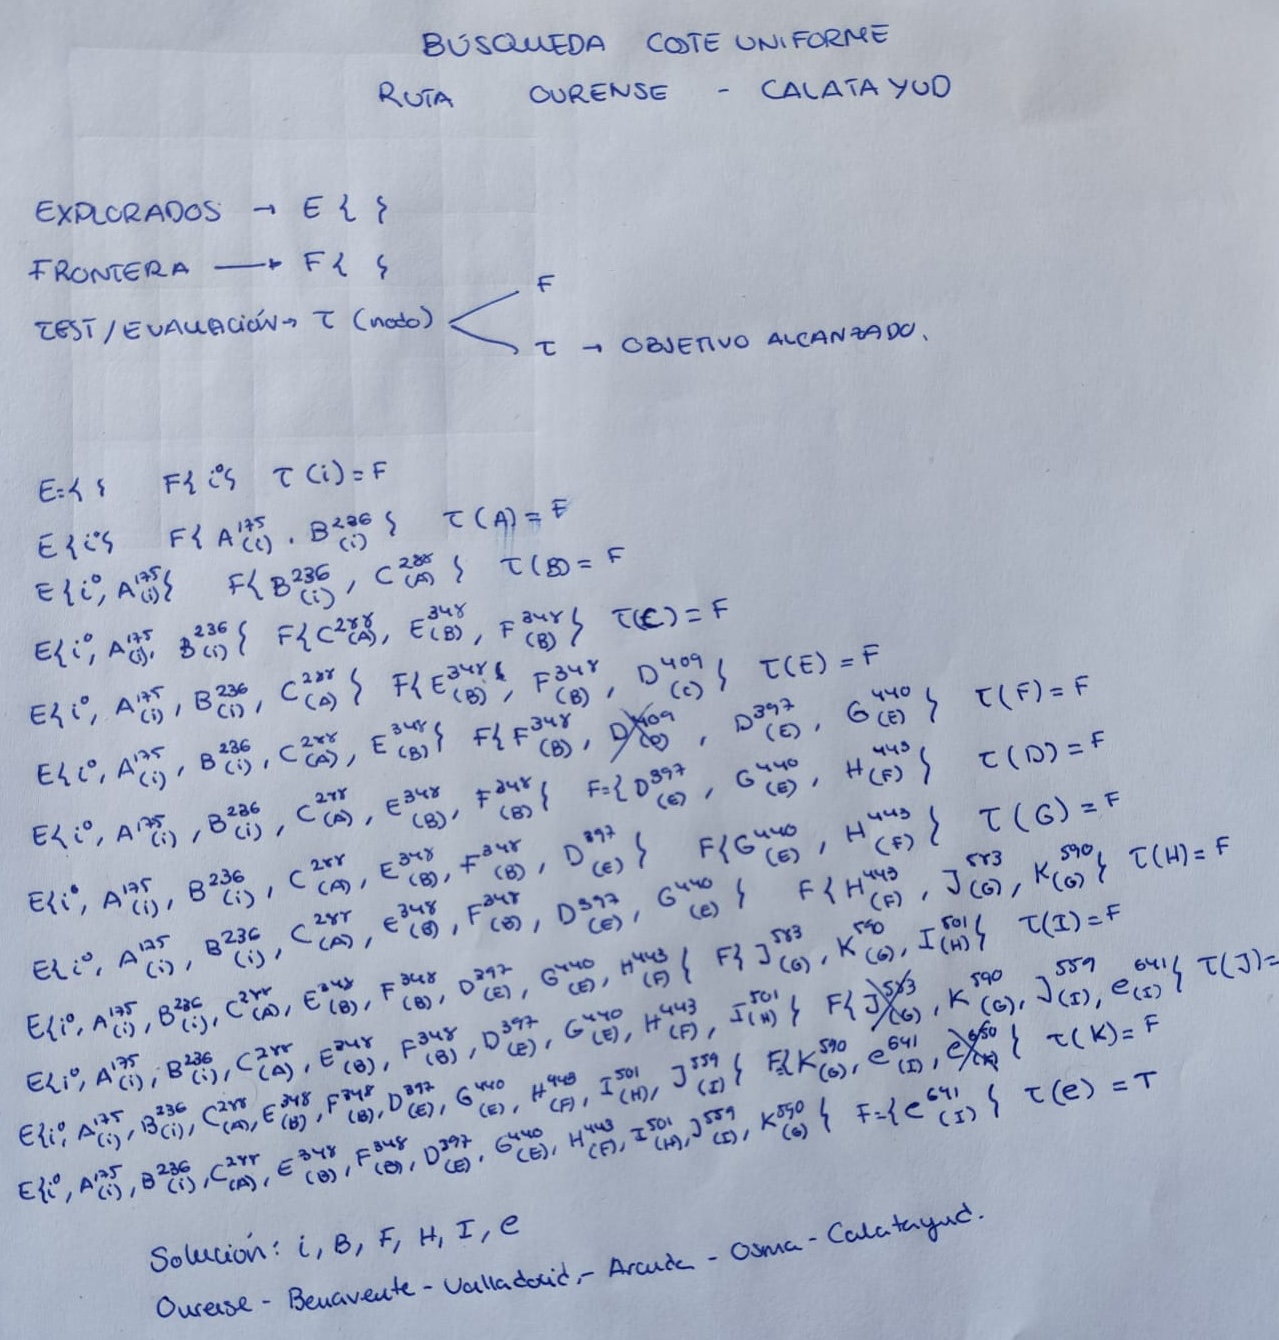 BÚSQUEDA COSTE UNIFORME
RUTA OURENSE - CALATAYUD
EXPLORADOS → E { }
FRONTERA → F { }
TEST/EVALUACIÓN → T (nodo)
F
T → OBJETIVO ALCANZADO.
E={ } F{ i⁰} T (i) = F
E{i⁰} F{ A¹⁷⁵(i) . B²³⁶(i) } T (A) = F
E{i⁰, A¹⁷⁵(i)} F{B²³⁶(i), C²⁸⁸(A) } T (B) = F
E{i⁰, A¹⁷⁵(i), B²³⁶(i)} F{C²⁸⁸(A), E³⁴⁸(B), F³⁴⁸(B)} T(C) = F
E{i⁰, A¹⁷⁵(i), B²³⁶(i), C²⁸⁸(A)} F{E³⁴⁸(B), F³⁴⁸(B), D⁴⁰⁹(C)} T(E) = F
E{i⁰, A¹⁷⁵(i), B²³⁶(i), C²⁸⁸(A), E³⁴⁸(B)} F{F³⁴⁸(B), D⁴⁰⁹, D³⁹⁷(E), G⁴⁴⁰(E)} T(F) = F
E{i⁰, A¹⁷⁵(i), B²³⁶(i), C²⁸⁸(A), E³⁴⁸(B), F³⁴⁸(B)} F={D³⁹⁷(E), G⁴⁴⁰(E), H⁴⁴³(F)} T(D) = F
E{i⁰, A¹⁷⁵(i), B²³⁶(i), C²⁸⁸(A), E³⁴⁸(B), F³⁴⁸(B), D³⁹⁷(E)} F{G⁴⁴⁰(E), H⁴⁴³(F)} T(G) = F
E{i⁰, A¹²⁵(i), B²³⁶(i), C²⁸⁸(A), E³⁴⁸(B), F³⁴⁸(B), D³⁹⁷(E), G⁴⁴⁰(E)} F{H⁴⁴³(F), J⁵⁸³(G), K⁵⁹⁰(G)} T(H) = F
E{i⁰, A¹⁷⁵(i), B²³⁶(i), C²⁸⁸(A), E³⁴⁸(B), F³⁴⁸(B), D³⁹⁷(E), G⁴⁴⁰(E), H⁴⁴³(F)} F{J⁵⁸³(G), K⁵⁹⁰(G), I⁵⁰¹(H)} T(I) = F
E{i⁰, A¹⁷⁵(i), B²³⁶(i), C²⁸⁸(A), E³⁴⁸(B), F³⁴⁸(B), D³⁹⁷(E), G⁴⁴⁰(E), H⁴⁴³(F), I⁵⁰¹(H)} F{J⁵⁸³(G), K⁵⁹⁰(G), J⁵⁵⁹(I), e⁶⁴¹(I)} T(J)=
E{i⁰, A¹⁷⁵(i), B²³⁶(i), C²⁸⁸(A), E³⁴⁸(B), F³⁴⁸(B), D³⁹⁷(E), G⁴⁴⁰(E), H⁴⁴³(F), I⁵⁰¹(H), J⁵⁵⁹(I)} F{K⁵⁹⁰(G), e⁶⁴¹(I), e⁶⁵⁰} T(K) = F
E{i⁰, A¹⁷⁵(i), B²³⁶(i), C²⁸⁸(A), E³⁴⁸(B), F³⁴⁸(B), D³⁹⁷(E), G⁴⁴⁰(E), H⁴⁴³(F), I⁵⁰¹(H), J⁵⁵⁹(I), K⁵⁹⁰(G)} F={e⁶⁴¹(I)} T(e) = T
Solución: i, B, F, H, I, e
Ourense - Benavente - Valladolid - Aranda - Osma - Calatayud.